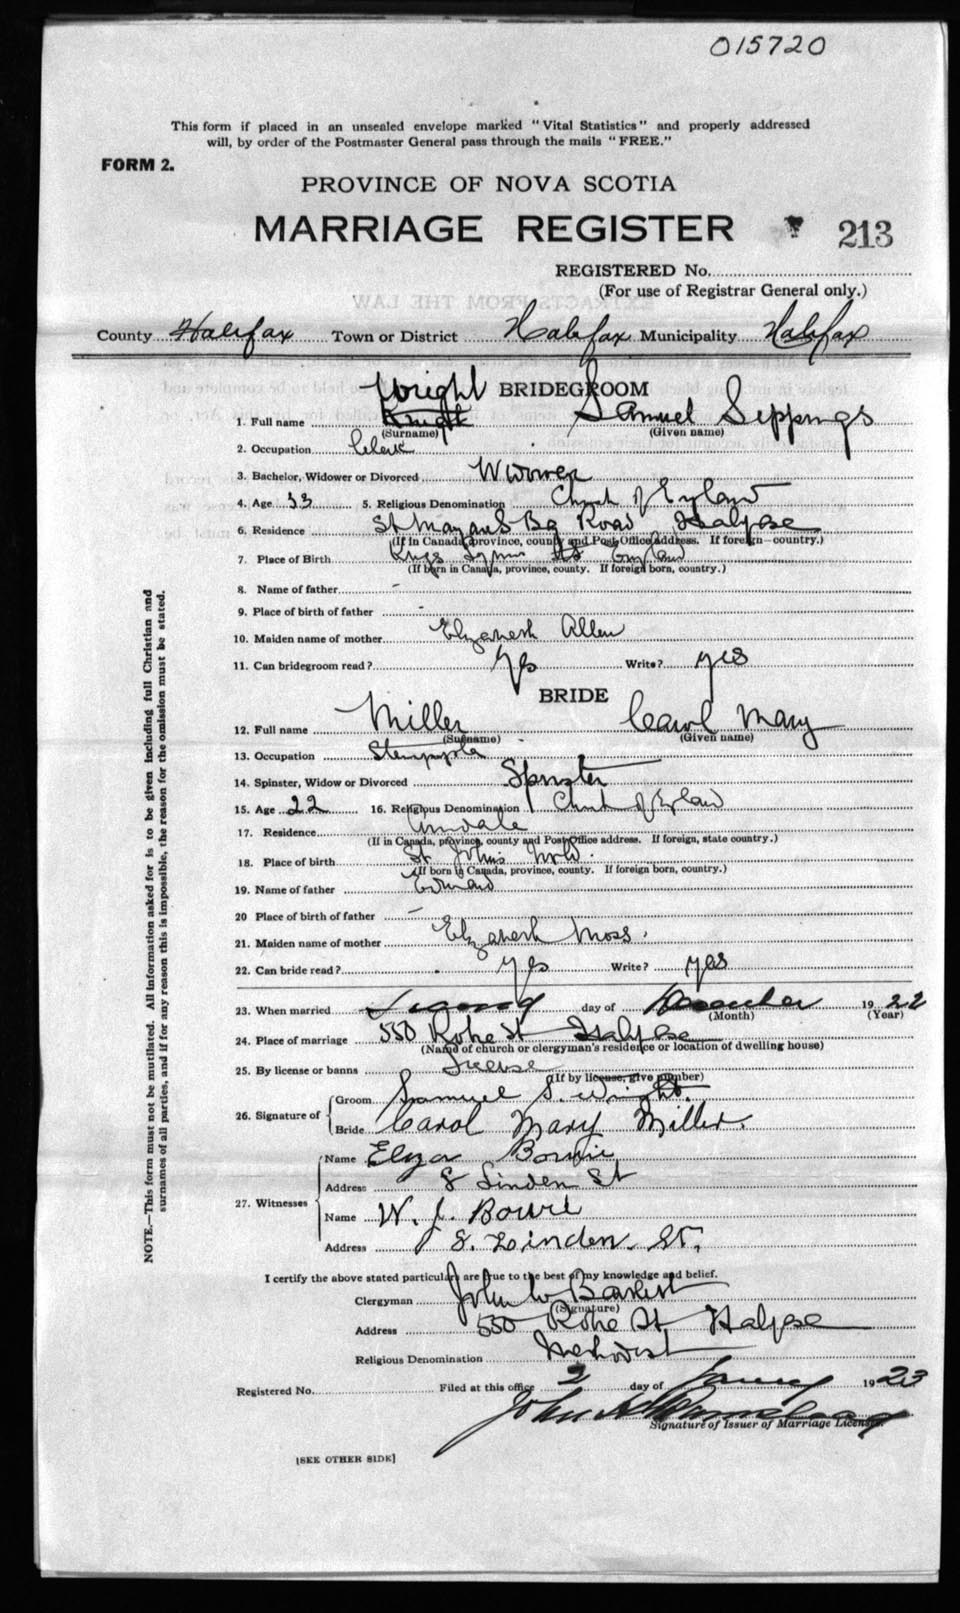 015720
This form if placed in an unsealed envelope marked "Vital Statistics" and properly addressed
will, by order of the Postmaster General pass through the mails "FREE."
FORM 2.
PROVINCE OF NOVA SCOTIA
MARRIAGE REGISTER 213
REGISTERED No.
(For use of Registrar General only.)
County Halifax Town or District Halifax Municipality Halifax
BRIDEGROOM
Wright
1. Full name Knight Samuel Seppings
(Surname) (Given name)
2. Occupation Clerk
3. Bachelor, Widower or Divorced Widower
4. Age 33 5. Religious Denomination Church of England
6. Residence St Margarets Bg Road Halifax
(If in Canada, province, county and Post Office Address. If foreign—country.)
7. Place of Birth Kings Lynn England
(If born in Canada, province, county. If foreign born, country.)
8. Name of father -
9. Place of birth of father -
10. Maiden name of mother Elizabeth Allen
11. Can bridegroom read? Yes Write? yes
BRIDE
12. Full name Miller Carol Mary
(Surname) (Given name)
13. Occupation
14. Spinster, Widow or Divorced Spinster
15. Age 22 16. Religious Denomination Church of England
17. Residence Armdale
(If in Canada, province, county and Post Office address. If foreign, state country.)
18. Place of birth St Johns Nfld.
(If born in Canada, province, county. If foreign born, country.)
19. Name of father Edward
20 Place of birth of father -
21. Maiden name of mother Elizabeth Moss.
22. Can bride read? Yes Write? yes
23. When married day of December 1922
(Month) (Year)
24. Place of marriage 550 Robie St Halifax
(Name of church or clergyman's residence or location of dwelling house)
25. By license or banns License
(If by license, give number)
26. Signature of Groom Samuel S. Wright.
Bride Carol Mary Miller.
27. Witnesses Name Eliza Bowie
Address 8 Linden St
Name W. J. Bowie
Address 8. Linden. St.
I certify the above stated particulars are true to the best of my knowledge and belief.
Clergyman John W
(Signature)
Address 550 Robie St Halifax
Religious Denomination Methodist
Registered No. Filed at this office 2 day of January 1923
John
Signature of Issuer of Marriage Licenses.
[SEE OTHER SIDE]
NOTE.—This form must not be mutilated. All information asked for is to be given including full Christian and
surnames of all parties, and if for any reason this is impossible, the reason for the omission must be stated.